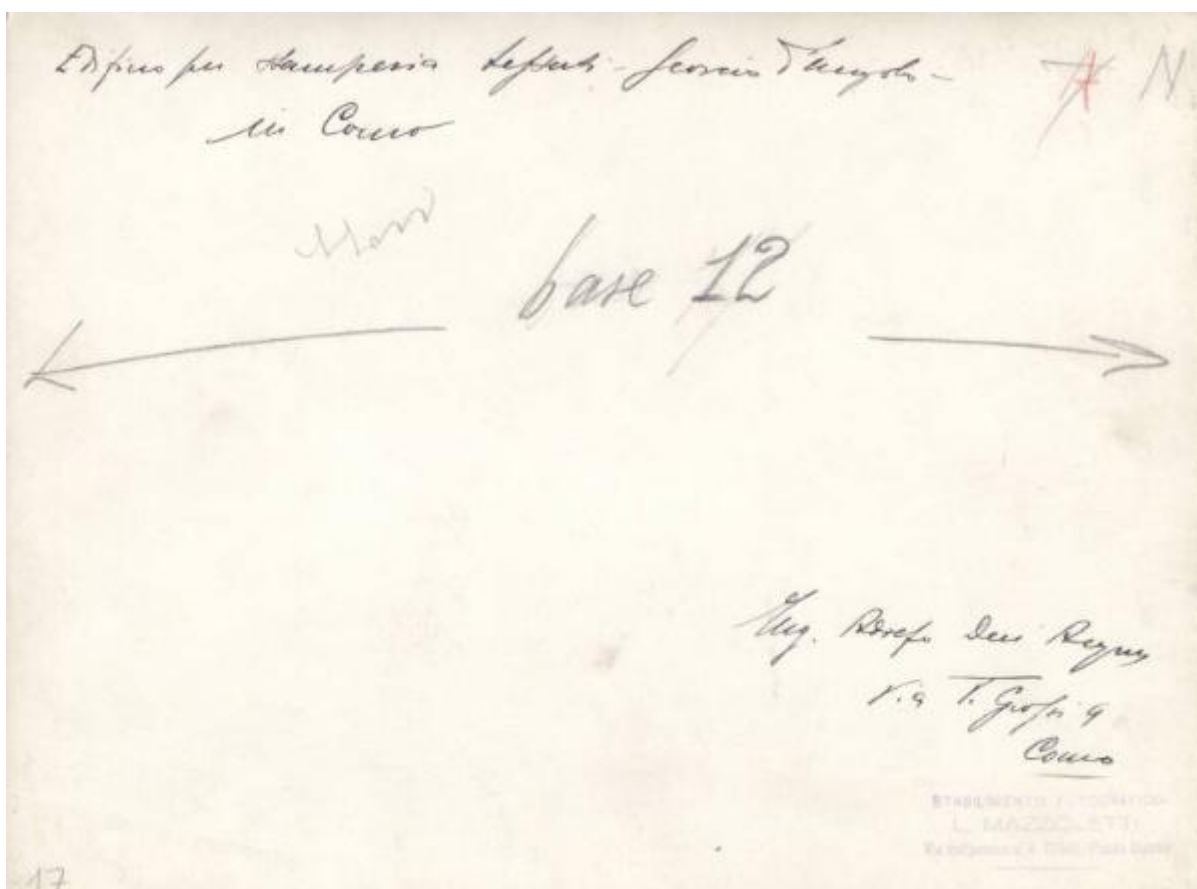 Edificio per stamperia tessuti - Scorcio d'angolo -
in Como
N
base 12
Ing. Adolfo Dell'Acqua
Via T. Grossi 9
Como
STABILIMENTO FOTOGRAFICO
L. MAZZOLETTI
17